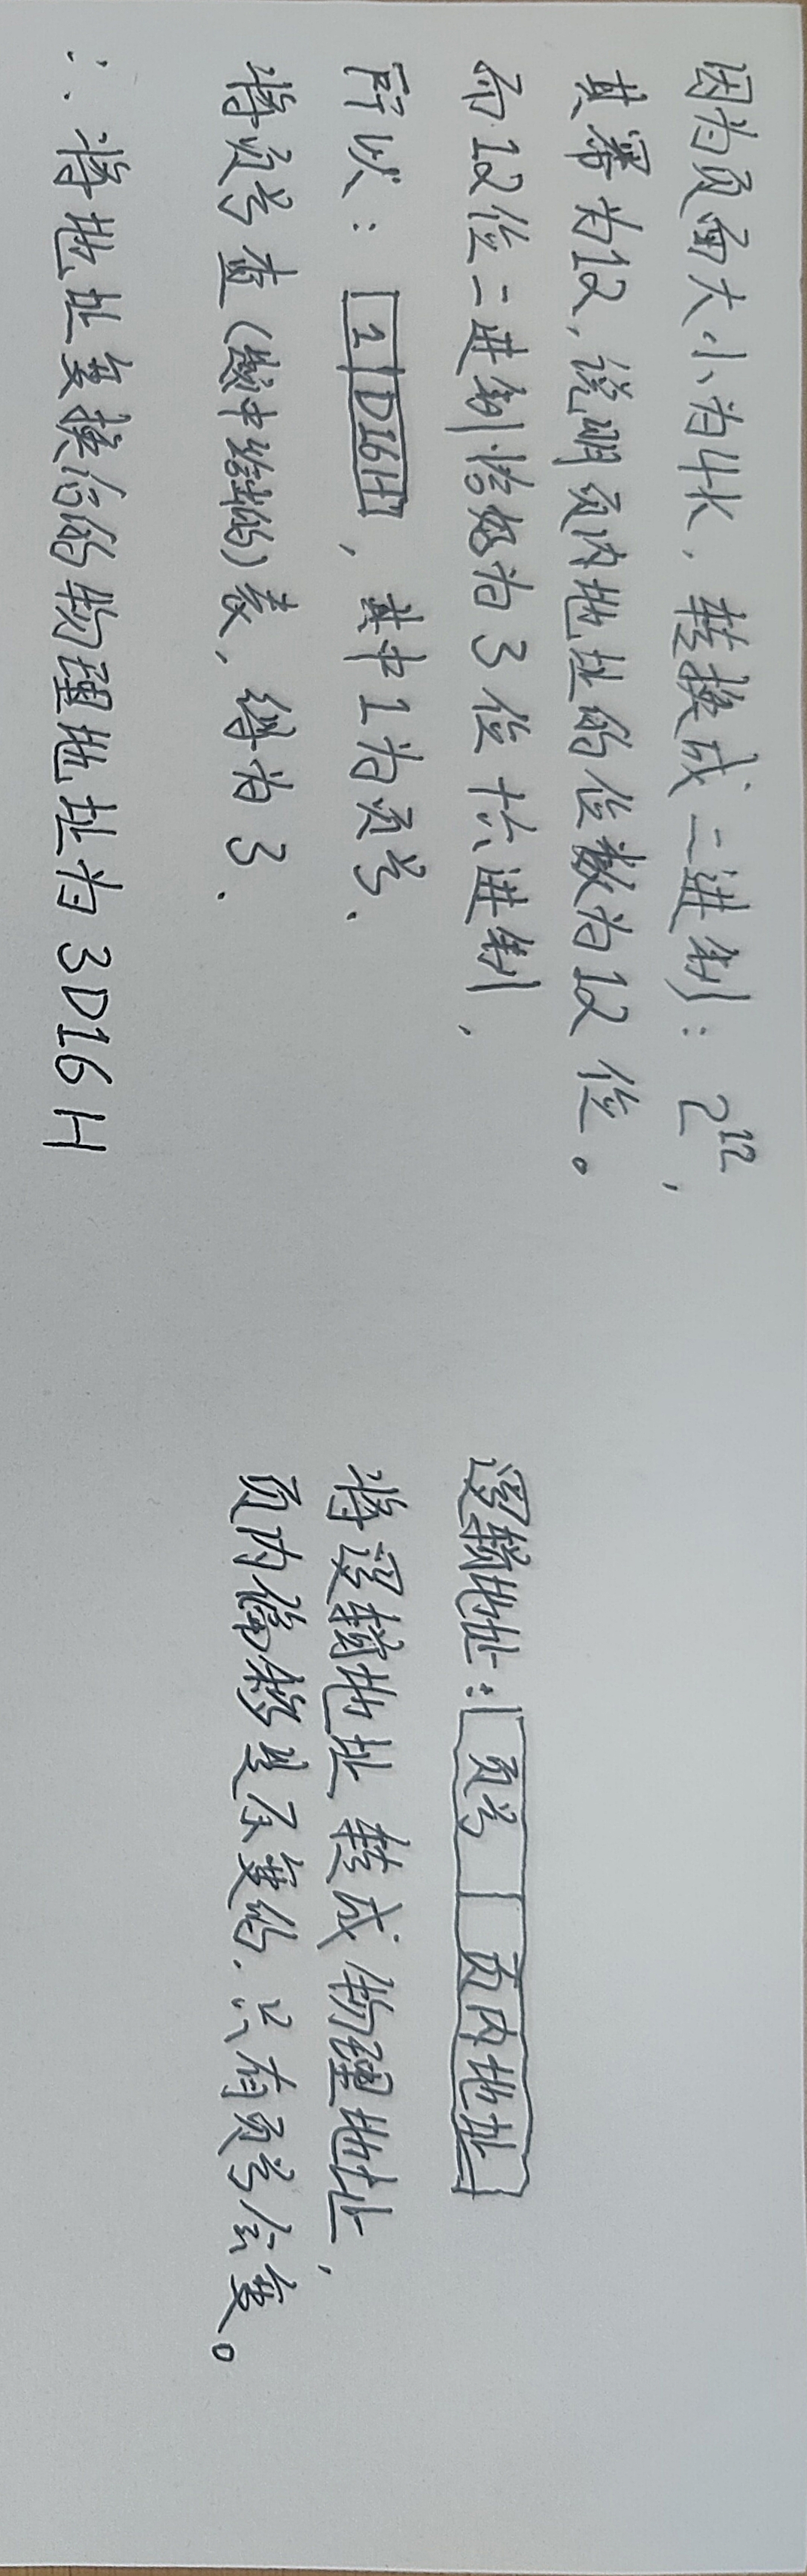 因为页面大小为4K，转换成二进制：2¹²，
其幂为12，说明页内地址的位数为12位。
而12位二进制恰好为3位十六进制，
所以：1 D16H，其中1为页号、
将页号查(题中给的)表，得为3、
∴将地址变换后的物理地址为3D16H
逻辑地址：页号 页内地址
将逻辑地址转成物理地址，
页内偏移是不变的.只有页号会变。